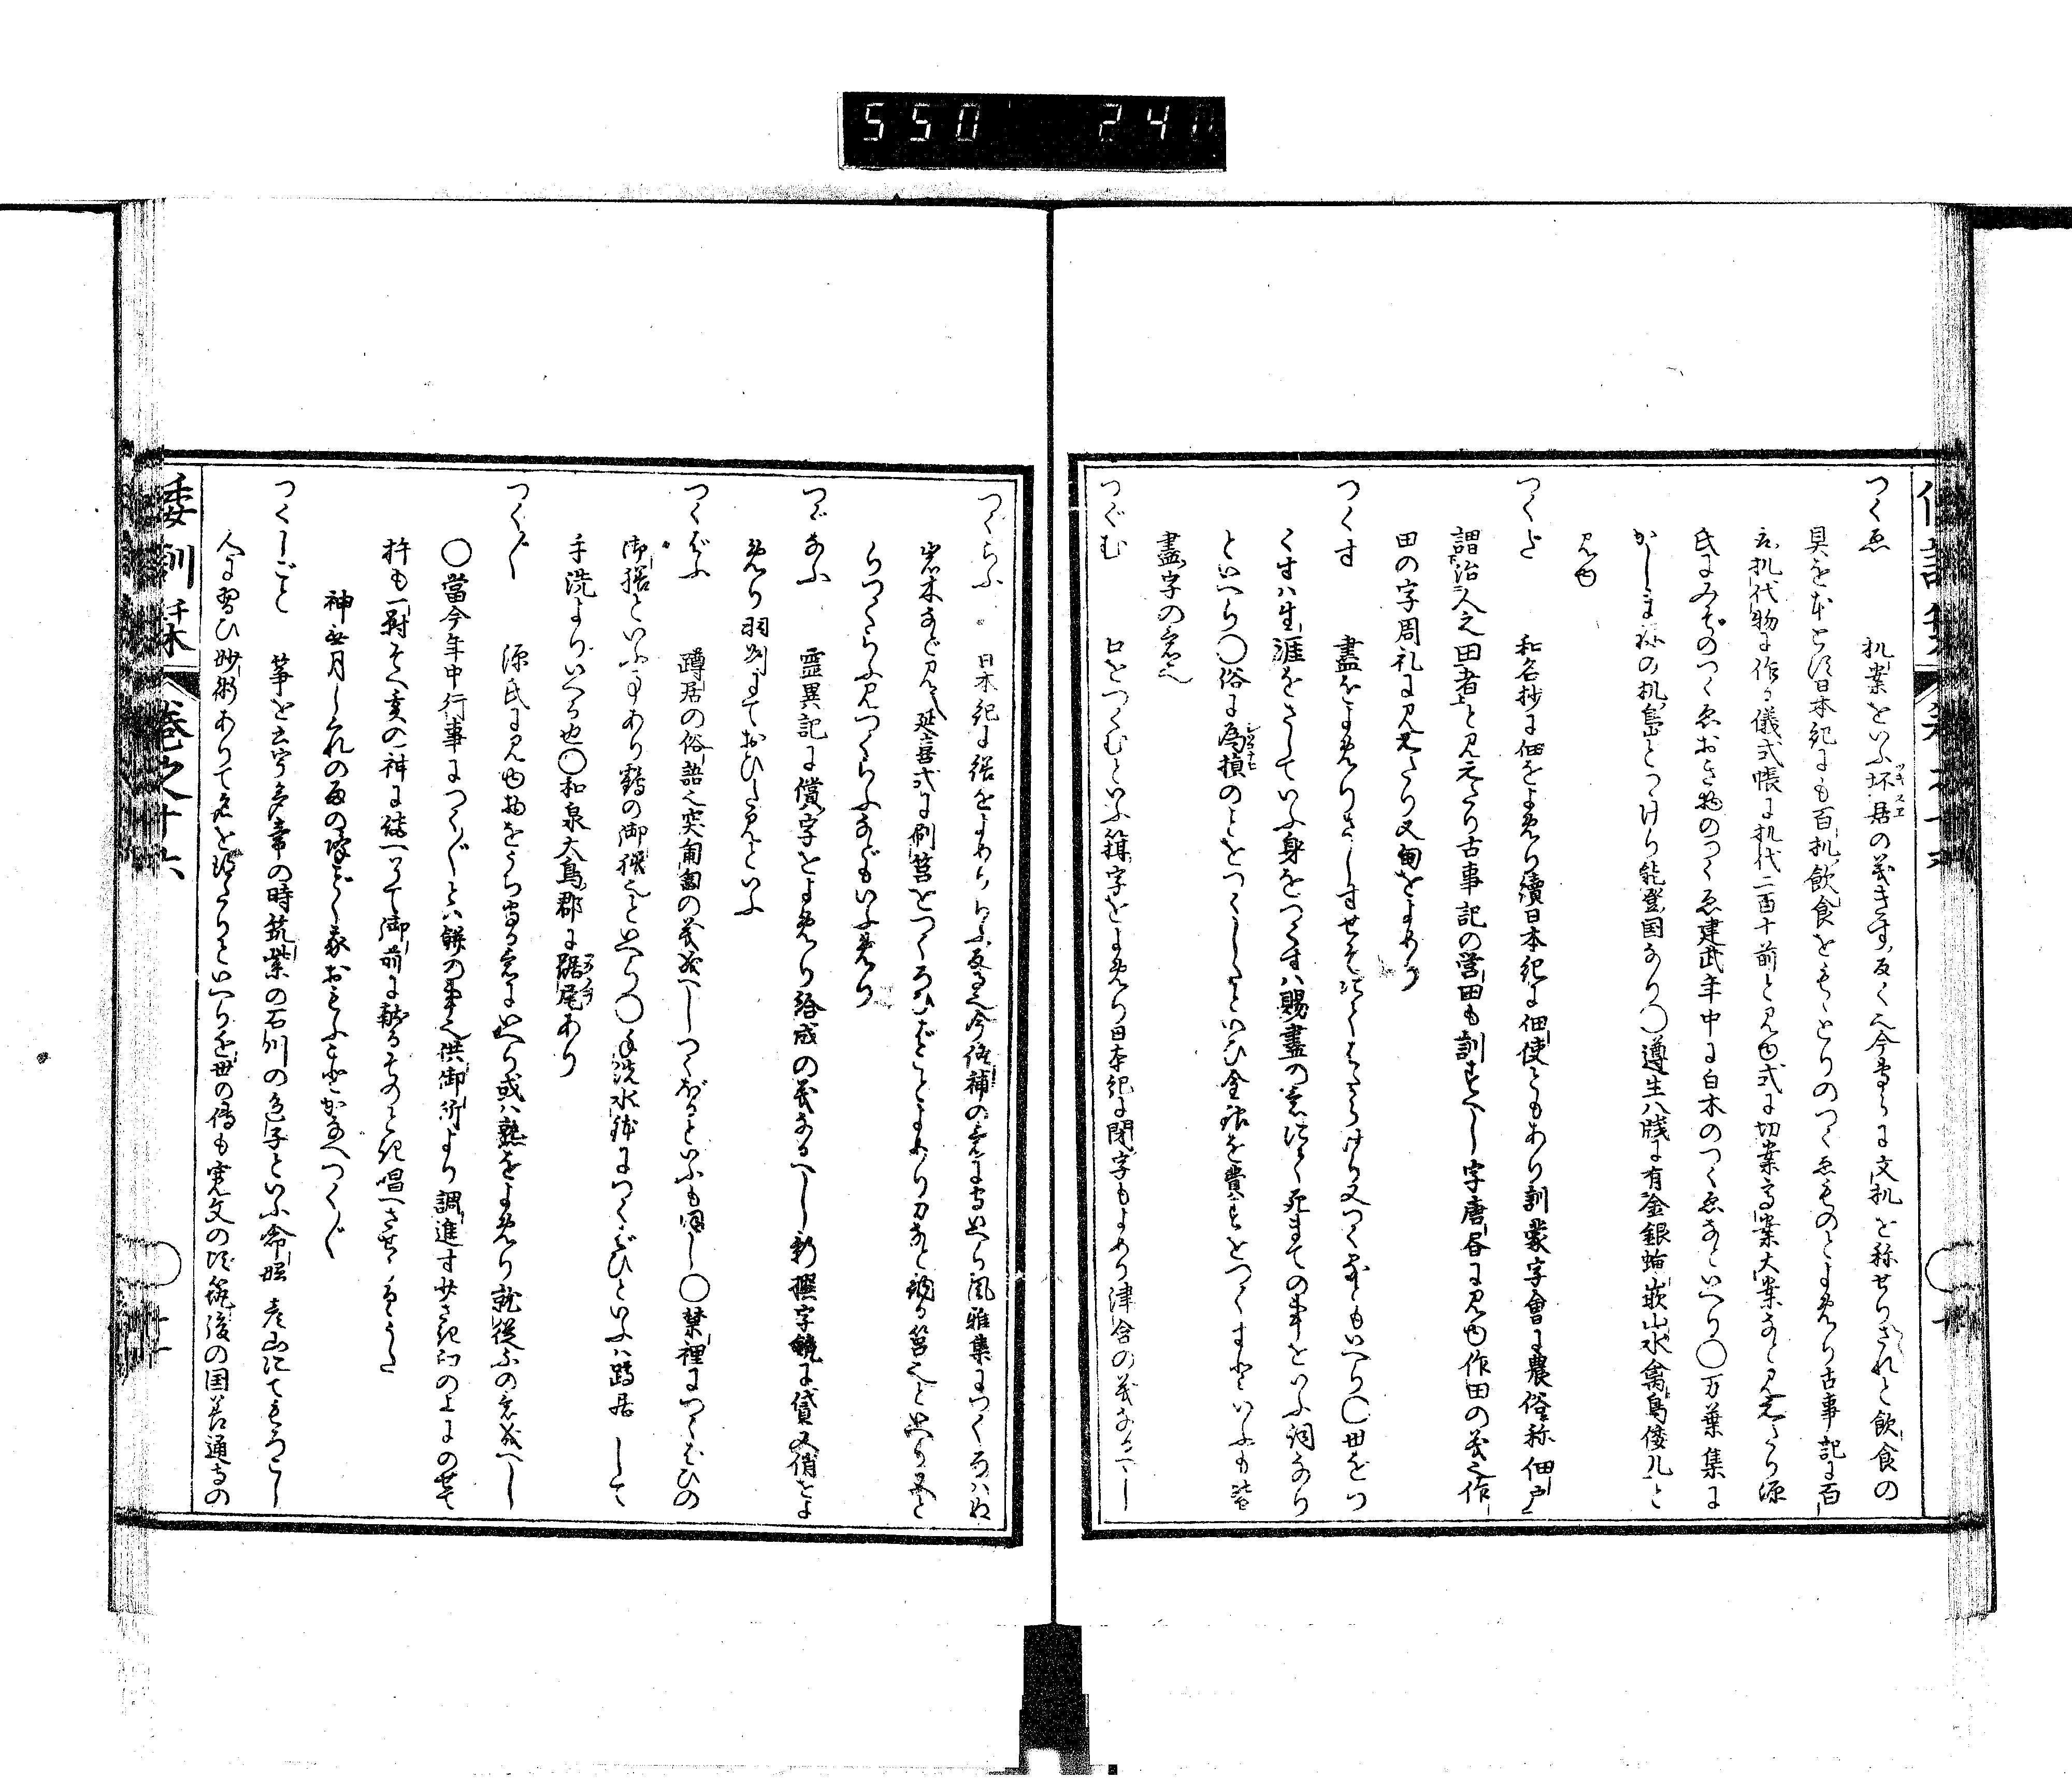 550 240
つくゑ 机案をいふ坏居の義きす反く也今専らに文机を称せりされと飲食の
具を本とす日本紀にも百机飲食をもゝとりのつくゑものとよめり古事記に百
取机代物に作る儀式帳に机代二百十前と見ゆ式に切案高案大案なと見えたり源
氏にみそのつくゑおき物のつくゑ建武年中に白木のつくゑなといへり〇万葉集に
かしまねの机島とつゝけり能登国なり〇遵生八牋に有金銀蚰嵌山水禽鳥倭几と
見ゆ
つくだ 和名抄に佃をよめり續日本紀に佃使ともあり訓蒙字會に農俗称佃戸
謂治人之田者と見えたり古事記の営田も訓すへし字唐書に見ゆ作田の義也作
田の字周礼に見えたり又甸をよめり
つくす 盡をよめり
くすハ生涯をさしていふ身をつくすハ賜盡の意にて死まての事をいふ詞なり
といへり〇俗に為損のことをつくしたといひ全銀を費すをつくすなといふも皆
盡字の意也
つぐむ 口をつくむといふ箝字をよめり日本紀に閉字もよめり津含の義なるへし
つくらふ 日本紀に繕をよめりらふ反る也今修補の意にもいへり風雅集につくろハぬ
岩木なと見ゆ延喜式に刷筥をつくろひはことよめり刀なと納る筥也といへり又と
りつくらふ見つくらふなどもいふめり
つぐなふ 霊異記に償字をよめり給成の義なるへし新撰字鏡に貸又偵をよ
めり羽州にておひた見といふ
つくばふ 蹲居の俗語也突匍匐の義成へしつくばるといふも同し〇禁裡につくはひの
御揚といふ事あり鶴の御椀也といへり〇手洗水鉢につくばひといふハ蹲居して
手洗よりいへる也〇和泉大鳥郡に踞尾あり
つく〳〵 源氏に見ゆ物をうち守る意にいへり或ハ熟をよめり就従ふの意成へし
〇當今年中行事につく〳〵とハ餅の事也供御所より調進す廿さ紀臼の上にのせて
杵も一對そへ亥の神に供へるて御前に献るそのとき唱へさせたまふうた
神無月しくれの雨の降ことく我おもふことかなへつく〳〵
つくしごと 筝を云宇多帝の時筑紫の石川の色子といふ命婦彦山にてもろこし
人に習ひ妙術ありて名を得たりといへり近世の傳も寛文の頃筑後の国善通寺の
倭訓栞 巻之十六